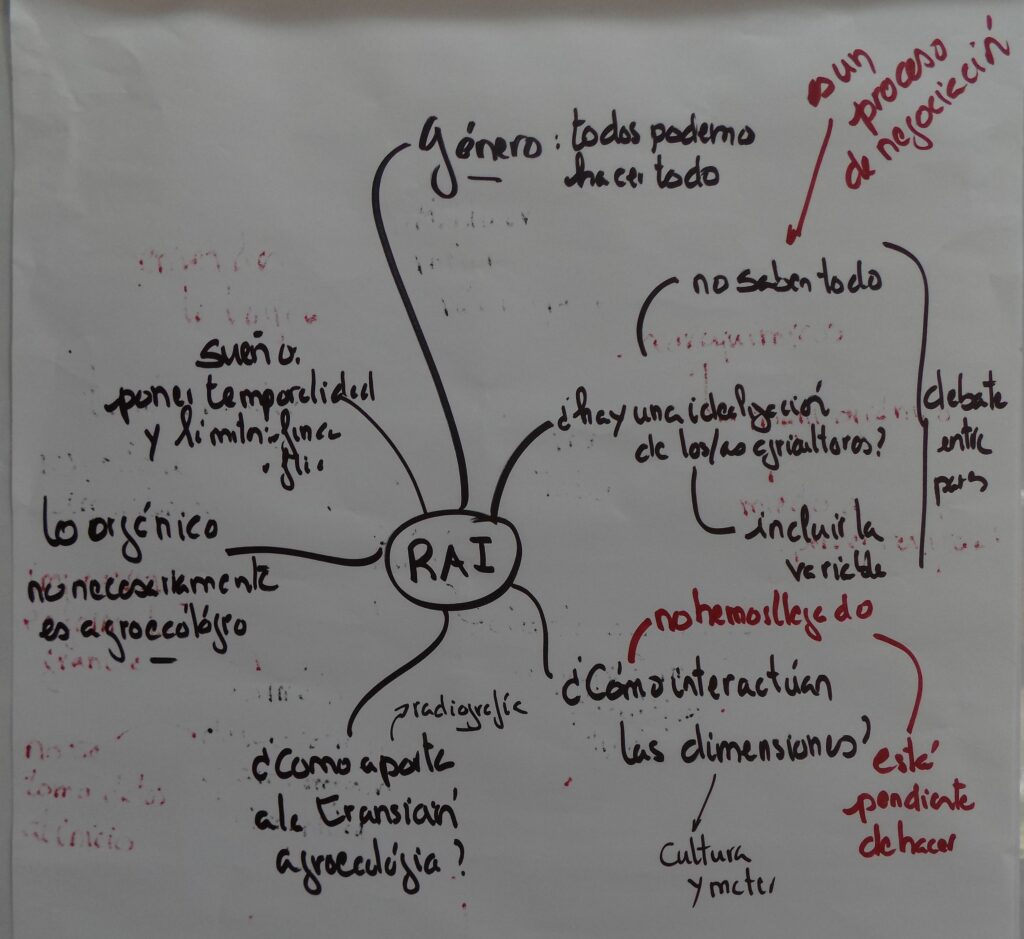 es un
proceso
de negociación
género: todos podemo
hacer todo
no saben todo
¿hay una idealización
de los/as agricultores?
incluir la
variable
debate
entre
pares
sueño.
poner temporalidad
y limitar. finca
lo orgánico
no necesariamente
es agroecológico
RAI
no hemos llegado
¿Cómo interactúan
las dimensiones?
está
pendiente
de hacer
Cultura
y mater
radiografía
¿Como aporta
a la transición
agroecológia?